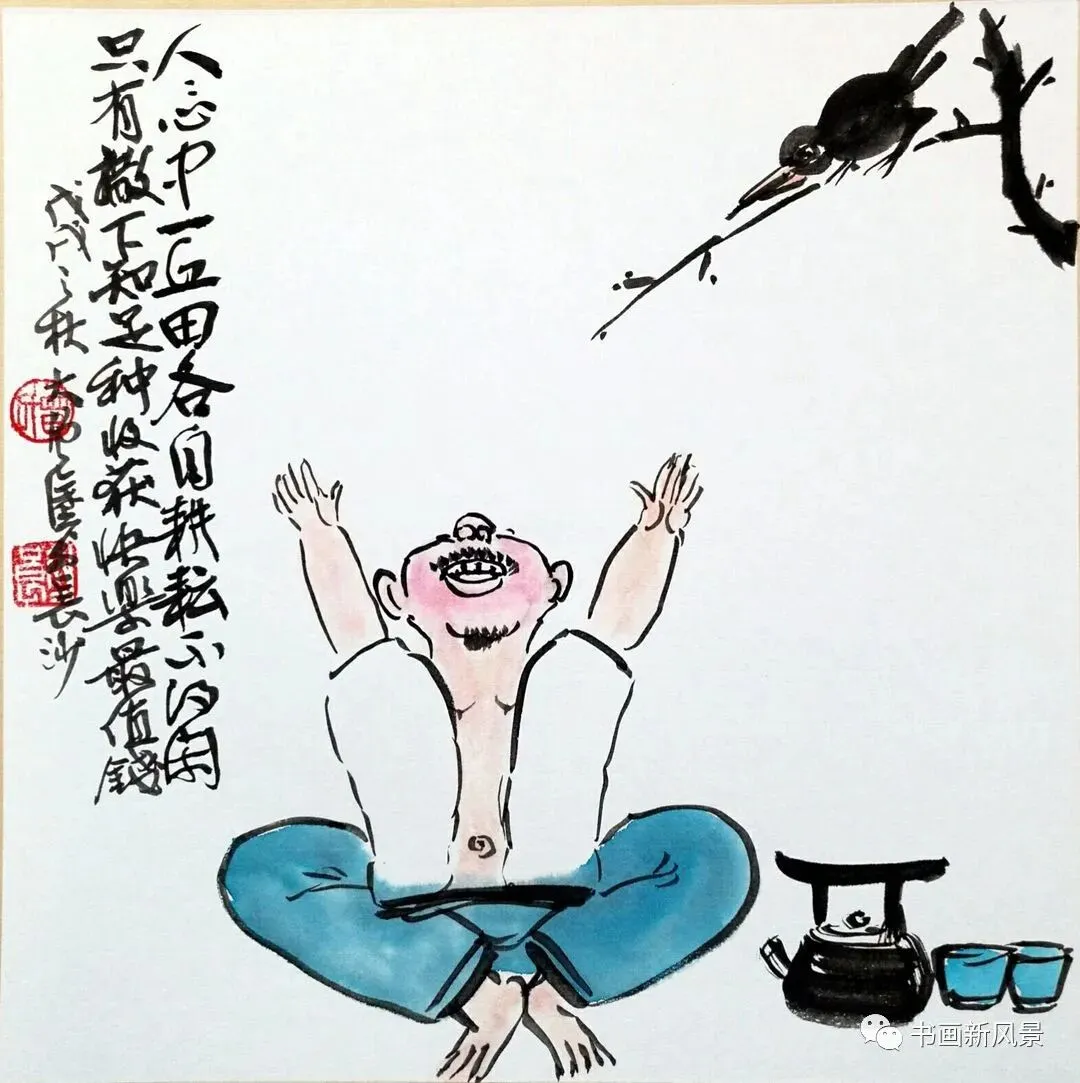 人〻心中一丘田各自耕耘不得闲
只有撒下知足种收获快樂最值錢
戊戌之秋大長沙
书画新风景